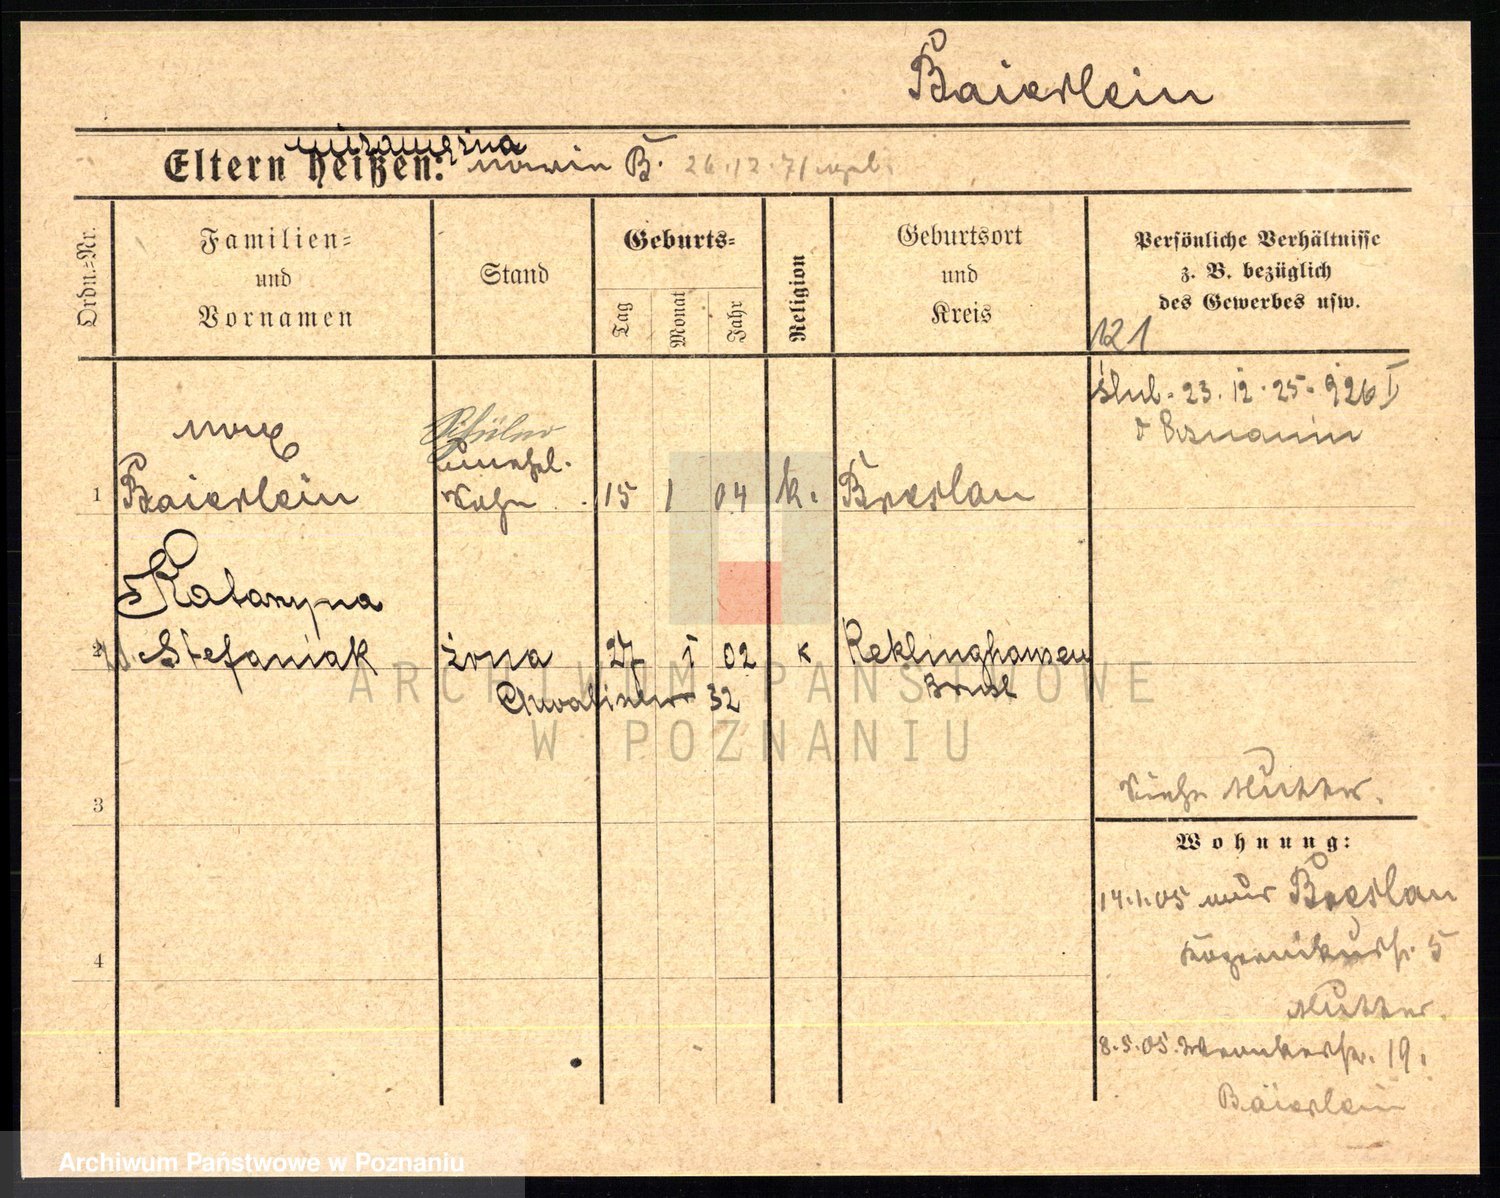 Baierlein
Eltern heißen: Maria B. 26.12.71
Ordn.-Nr.
Familien-
und
Vornamen
Stand
Geburts-
Tag
Monat
Jahr
Religion
Geburtsort
und
Kreis
Persönliche Verhältnisse
z. B. bezüglich
des Gewerbes usw.
121
ślub. 23.12.25.
Max
Schüler
unehel.
1 Baierlein Sohn 15 1 04 k. Breslau
Katarzyna
2 Stefaniak żona 27 I 02 k Reklinghausen
32
3
Siehe Mutter.
Wohnung:
14.1.05 aus Breslau
4
5
Mutter.
8.5.05. 19.
Baierlein
ARCHIWUM PAŃSTWOWE
W POZNANIU
Archiwum Państwowe w Poznaniu